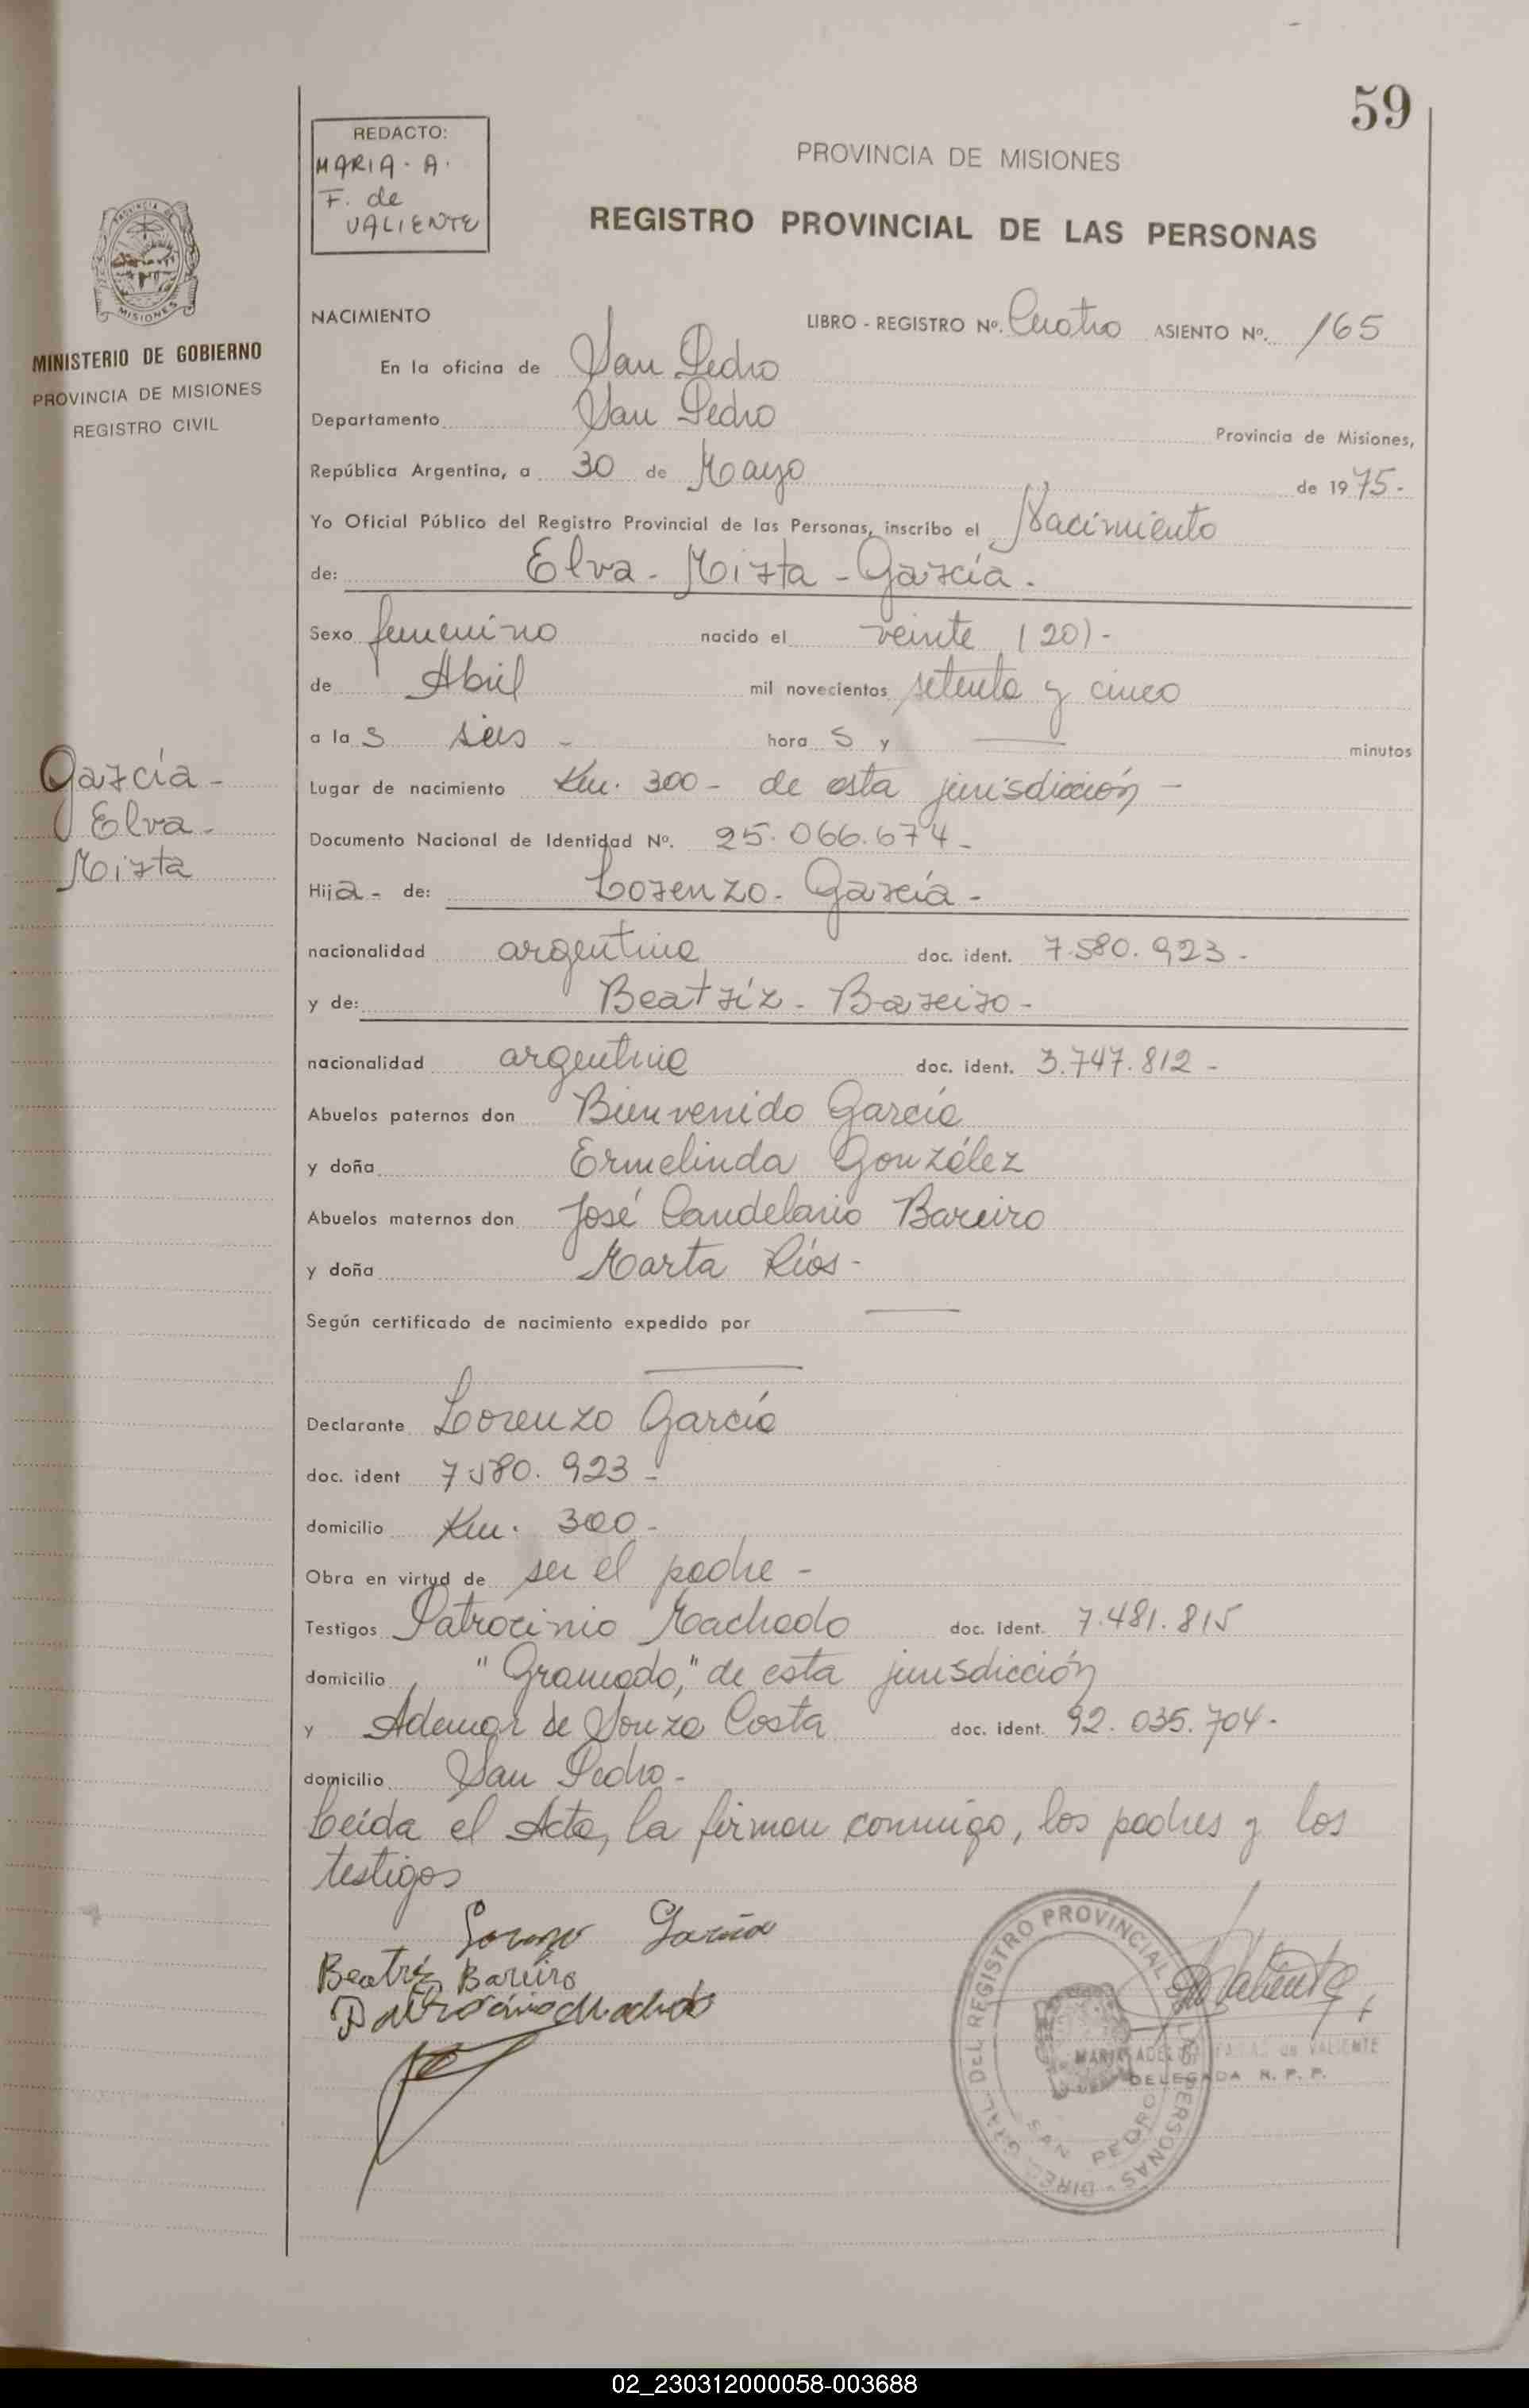 59
REDACTO:
MARIA. A.
F. de
VALIENTE
PROVINCIA DE MISIONES
REGISTRO PROVINCIAL DE LAS PERSONAS
MISIONES
MINISTERIO DE GOBIERNO
PROVINCIA DE MISIONES
REGISTRO CIVIL
NACIMIENTO
LIBRO - REGISTRO Nº. Cuatro ASIENTO Nº. 165
En la oficina de San Pedro
Departamento San Pedro Provincia de Misiones,
República Argentina, a 30 de Mayo de 1975.-
Yo Oficial Público del Registro Provincial de las Personas, inscribo el Nacimiento
de: Elva - Mirta - García.
Sexo femenino nacido el veinte (20) -
de Abril mil novecientos setenta y cinco
a las seis - horas y — minutos
García -
Elva -
Mirta
Lugar de nacimiento Km. 300 - de esta jurisdicción -
Documento Nacional de Identidad Nº. 25.066.674 -
Hija - de: Lorenzo - García -
nacionalidad argentina doc. ident. 7.580.923 -
y de: Beatríz - Bareiro -
nacionalidad argentina doc. ident. 3.747.812 -
Abuelos paternos don Bienvenido García
y doña Ermelinda González
Abuelos maternos don José Candelario Bareiro
y doña Marta Ríos -
Según certificado de nacimiento expedido por —
—
Declarante Lorenzo García
doc. ident 7580.923 -
domicilio Km. 300 -
Obra en virtud de ser el padre -
Testigos Patrocinio Machado doc. ident. 7.481.815
domicilio "Gramado," de esta jurisdicción
y Ademar de Souza Costa doc. ident. 92.035.704 -
domicilio San Pedro -
Leída el Acta, la firman conmigo, los padres y los
testigos
Lorenzo García
Beatríz Bareiro
Patrocinio Machado
Valiente
DIREC. GRAL. DEL REGISTRO PROVINCIAL DE LAS PERSONAS
SAN PEDRO
DE VALIENTE
DELEGADA R. P. P.
02_230312000058-003688